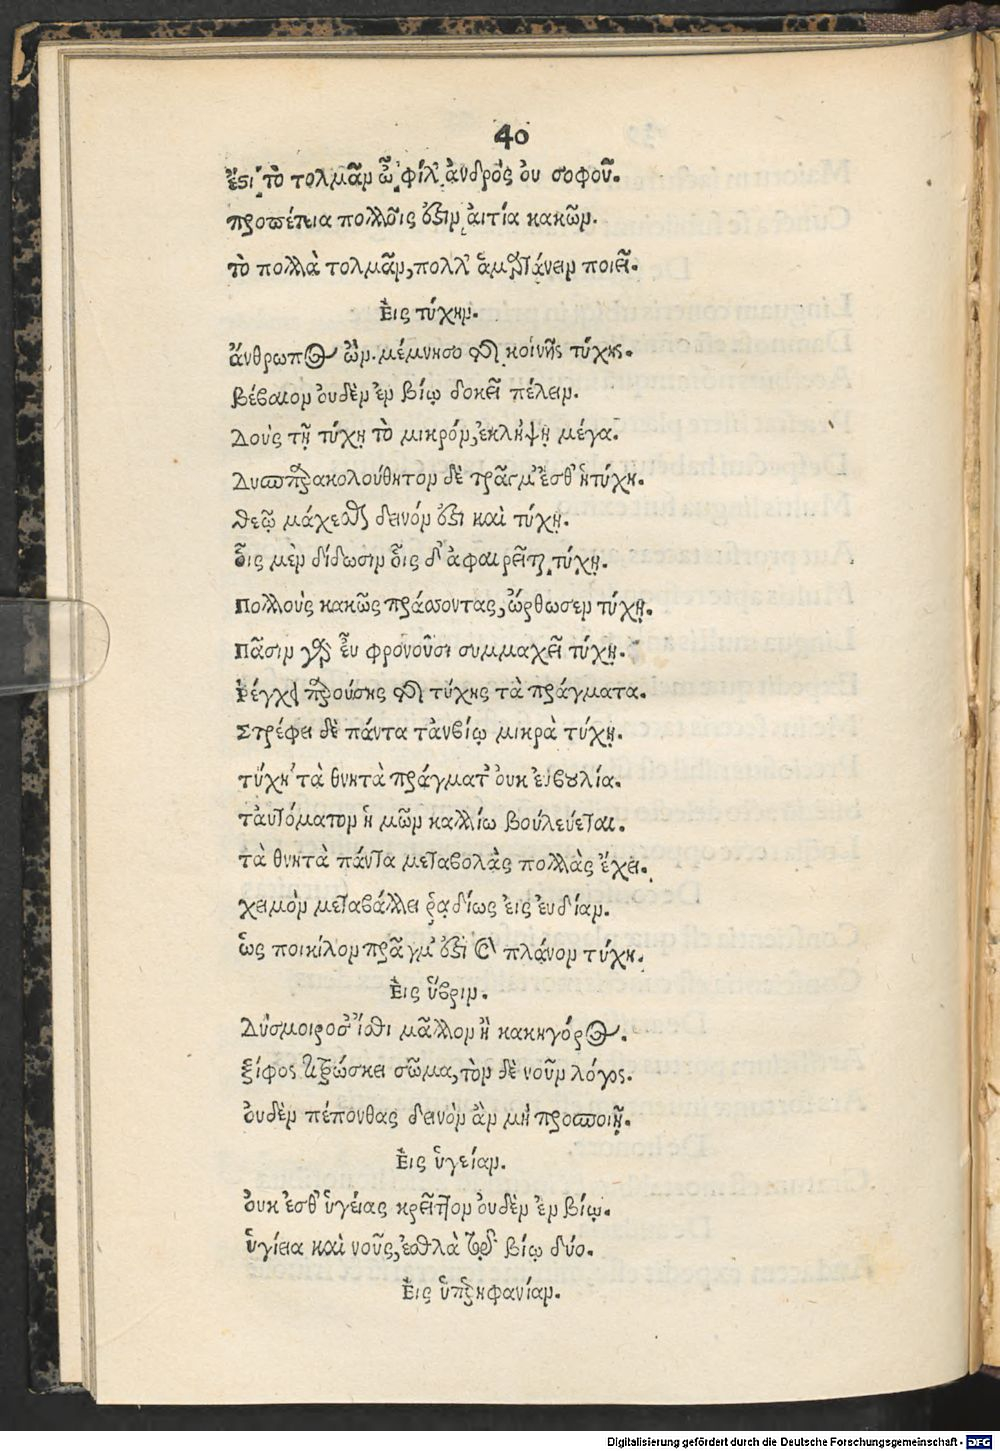 40
ἔστι τὸ τολμᾶν ὦ φίλ' ἀνδρὸς ὀυ σοφοῦ.
προπέτεια πολλοῖς ὅστιν ἀιτία κακῶν.
τὸ πολλὰ τολμᾶν, πολλ' ἁμαρτάνειν ποιεῖ.
Ἐις τύχην.
ἄνθρωπος ὢν. μέμνησο τῆς κοίνης τύχης.
βέβαιον ὀυδὲν ἐν βίῳ δοκεῖ πέλειν.
Δοὺς τῇ τύχῃ τὸ μικρόν, ἐκλήψῃ μέγα.
Δυσπαρακολούθητον δὲ πρᾶγμ' ἐσθ' ἡ τύχη.
θεῷ μάχεσθαι δεινόν ὅστι καὶ τύχῃ.
ὅις μὲν δίδωσιν ὅις δ' ἀφαιρεῖται τύχῃ.
Πολλοὺς κακῶς πράσσοντας, ὤρθωσεν τύχῃ.
Πᾶσιν γὰρ ἐυ φρονοῦσι συμμαχεῖ τύχῃ.
Ῥέγχει παρούσης τῆς τύχης τὰ πράγματα.
Στρέφει δὲ πάντα τἀνβίῳ μικρὰ τύχῃ.
τύχη τὰ θνητὰ πράγματ' ὀυκ ἐυβουλία.
τἀυτόματον ἡμῶν καλλίω βούλεύεται.
τὰ θνητὰ πάντα μεταβολὰς πολλὰς ἔχει.
χειμὸν μεταβάλλει ῥᾳδίως ἐις ἐυδίαν.
ὡς ποικίλον πρᾶγμ' ὅστι καὶ πλάνον τύχη.
Ἐις ὕβριν.
Δύσμοιρος ἴσθι μᾶλλον ἢ κακηγόρος.
ξίφος τιτρώσκει σῶμα, τὸν δὲ νοῦν λόγος.
ὀυδὲν πέπονθας δεινὸν ἂν μὴ προσποιῇ.
Ἐις ὑγείαν.
ὀυκ ἐσθ' ὑγείας κρεῖττον ὀυδὲν ἐν βίῳ.
ὑγίεια καὶ νοῦς, ἐσθλὰ τῷ βίῳ δύο.
Ἐις ὑπερηφανίαν.
Digitalisierung gefördert durch die Deutsche Forschungsgemeinschaft - DFG